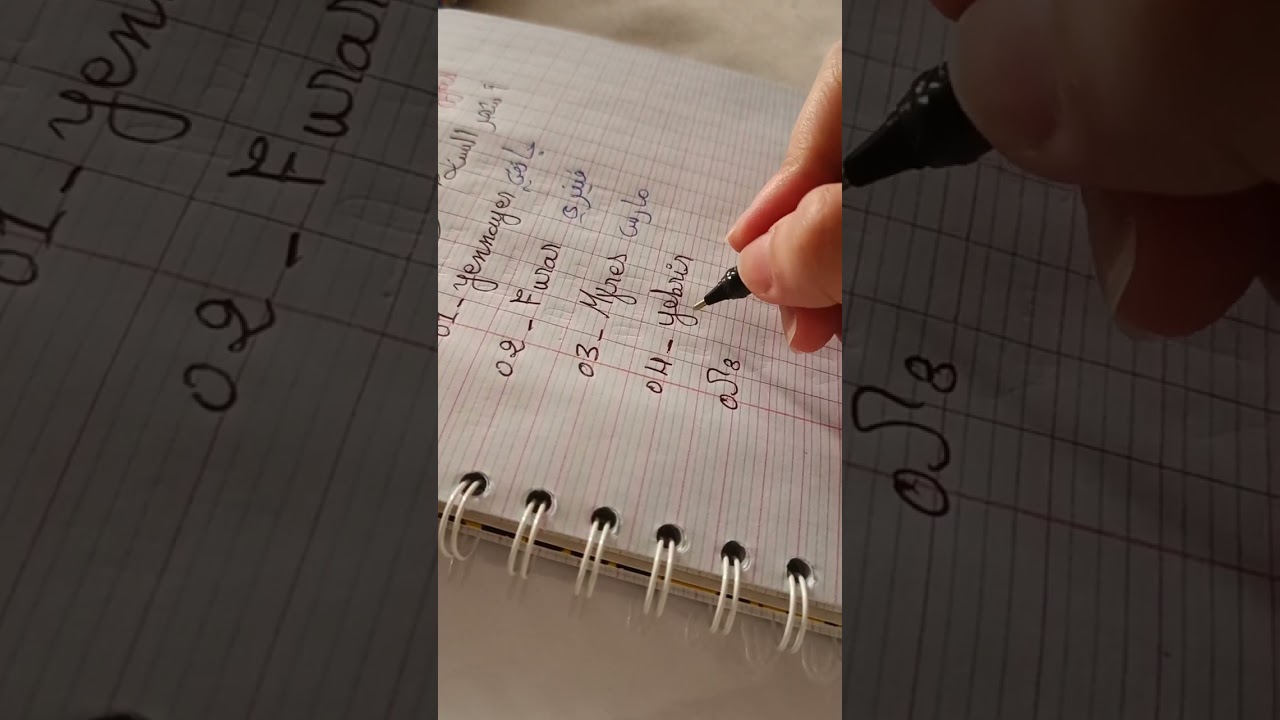 أشهر السنة
01- Yennayer جانفي
02- Furar فيفري
03- Meres مارس
04- Yebrir
05